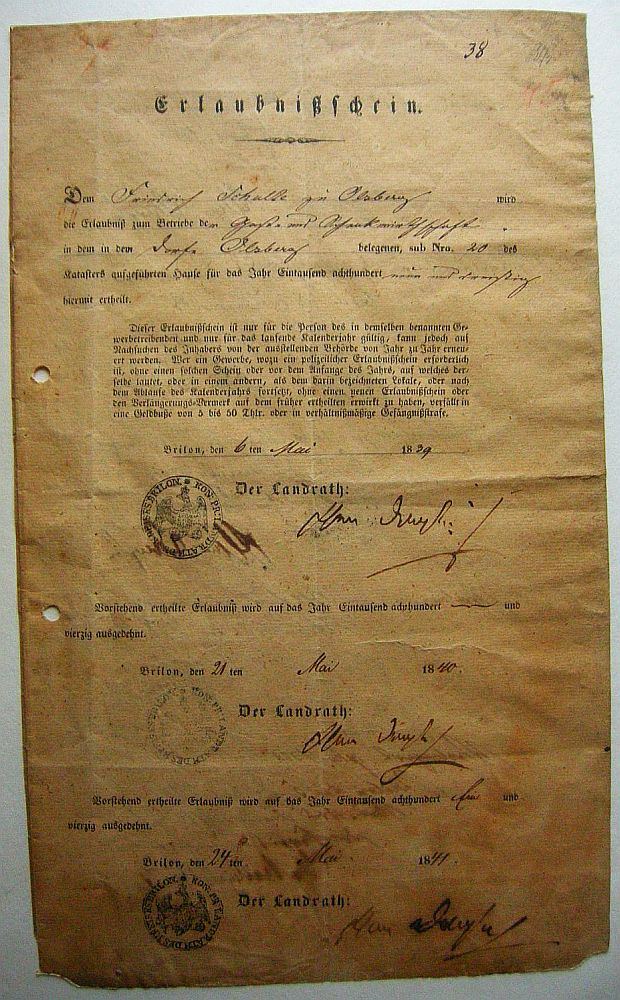 38
Erlaubnißschein.
Dem Friedrich Schulte zu Olsberg wird
die Erlaubniß zum Betriebe der Gast- und Schenkwirthschaft
in dem in dem Dorfe Olsberg belegenen, sub Nro. 20 des
Katasters aufgeführten Hause für das Jahr Eintausend achthundert neun und dreißig
hiermit ertheilt.
Dieser Erlaubnißschein ist nur für die Person des in demselben benannten Ge-
werbetreibenden und nur für das laufende Kalenderjahr gültig, kann jedoch auf
Nachsuchen des Inhabers von der ausstellenden Behörde von Jahr zu Jahr erneu-
ert werden. Wer ein Gewerbe, wozu ein polizeilicher Erlaubnißschein erforderlich
ist, ohne einen solchen Schein oder vor dem Anfange des Jahrs, auf welches der-
selbe lautet, oder in einem andern, als dem darin bezeichneten Lokale, oder nach
dem Ablaufe des Kalenderjahrs fortsetzt, ohne einen neuen Erlaubnißschein oder
den Verlängerungs-Vermerk auf dem früher ertheilten erwirkt zu haben, verfällt in
eine Geldbuße von 5 bis 50 Thlr. oder in verhältnißmäßige Gefängnißstrafe.
Brilon, den 6 ten Mai 1839
Der Landrath:
KÖN. PR. LANDRATH DES KREISES BRILON.
Vorstehend ertheilte Erlaubniß wird auf das Jahr Eintausend achthundert und
vierzig ausgedehnt.
Brilon, den 21 ten Mai 1840.
Der Landrath:
KÖN. PR. LANDRATH DES KREISES BRILON.
Vorstehend ertheilte Erlaubniß wird auf das Jahr Eintausend achthundert Ein und
vierzig ausgedehnt.
Brilon, den 24 ten Mai 1841.
Der Landrath:
KÖN. PR. LANDRATH DES KREISES BRILON.